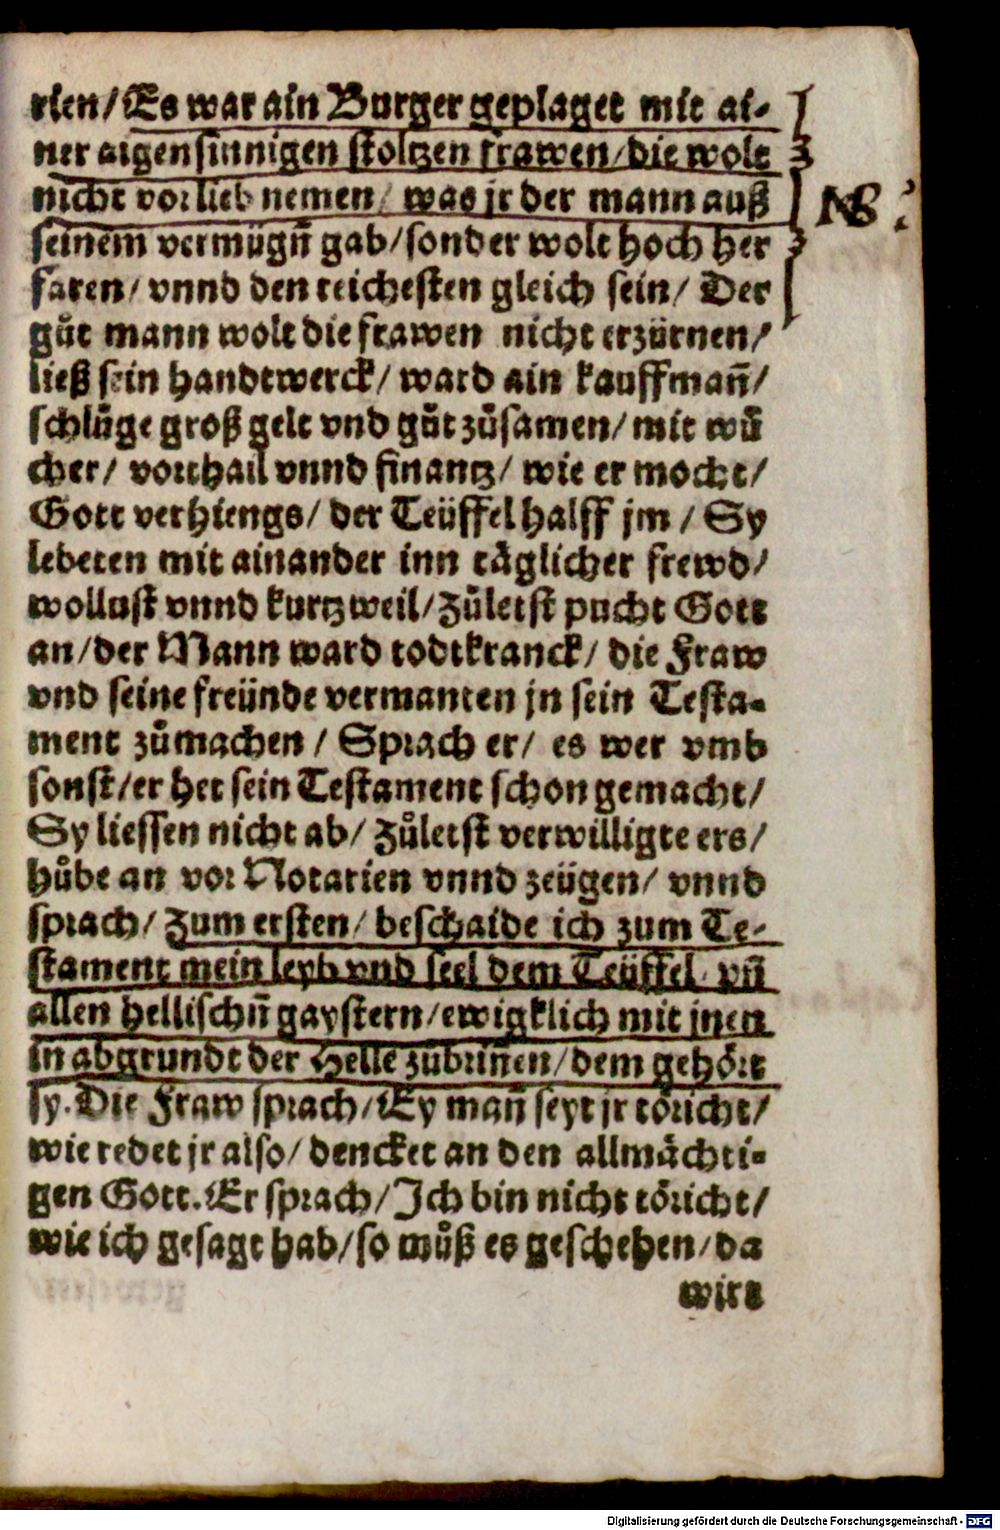 rien/ Es war ain Burger geplaget mit ai-
ner aigensinnigen stoltzen frawen/ die wolt
nicht vorlieb nemen/ was jr der mann auß
seinem vermügñ gab/ sonder wolt hoch her
faren/ vnnd den reichesten gleich sein/ Der
gůt mann wolt die frawen nicht erzürnen/
ließ sein handtwerck/ ward ain kauffmañ/
schlůge groß gelt vnd gůt zůsamen/ mit wů
cher/ vorthail vnnd finantz/ wie er mocht/
Gott verhiengs/ der Teüffel halff jm/ Sy
lebeten mit ainander inn täglicher frewd/
wollust vnnd kurtzweil/ Zůletst pucht Gott
an/ der Mann ward todtkranck/ die Fraw
vnd seine freünde vermanten jn sein Testa-
ment zůmachen/ Sprach er/ es wer vmb
sonst/ er het sein Testament schon gemacht/
Sy liessen nicht ab/ Zůletst verwilligte ers/
hůbe an vor Notarien vnnd zeügen/ vnnd
sprach/ Zum ersten/ beschaide ich zum Te-
stament mein leyb vnd seel dem Teüffel/ vñ
allen hellischñ gaystern/ ewigklich mit jnen
in abgrundt der Helle zůbrinnen/ dem gehört
sy. Die Fraw sprach/ Ey mañ seyt jr töricht/
wie redet jr also/ dencket an den allmächti-
gen Gott. Er sprach/ Ich bin nicht töricht/
wie ich gesagt hab/ so můß es geschehen/ da
wirt
NB
Digitalisierung gefördert durch die Deutsche Forschungsgemeinschaft - DFG